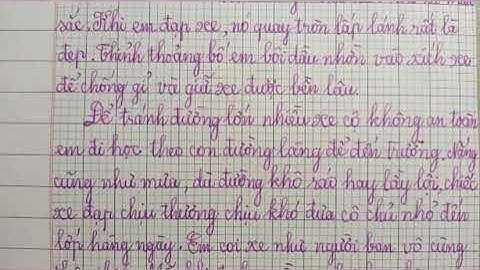 sắc. Khi em đạp xe, nó quay tròn lấp lánh rất là
đẹp. Thỉnh thoảng bố em bôi dầu nhờn vào xích xe
để chống gỉ và giữ xe được bền lâu.
Để tránh đường lớn nhiều xe cộ không an toàn
em đi học theo con đường làng để đến trường. Nắng
cũng như mưa, dù đường khô ráo hay lầy lội, chiếc
xe đạp chịu thương chịu khó đưa cô chủ nhỏ đến
lớp hàng ngày. Em coi xe như người bạn vô cùng